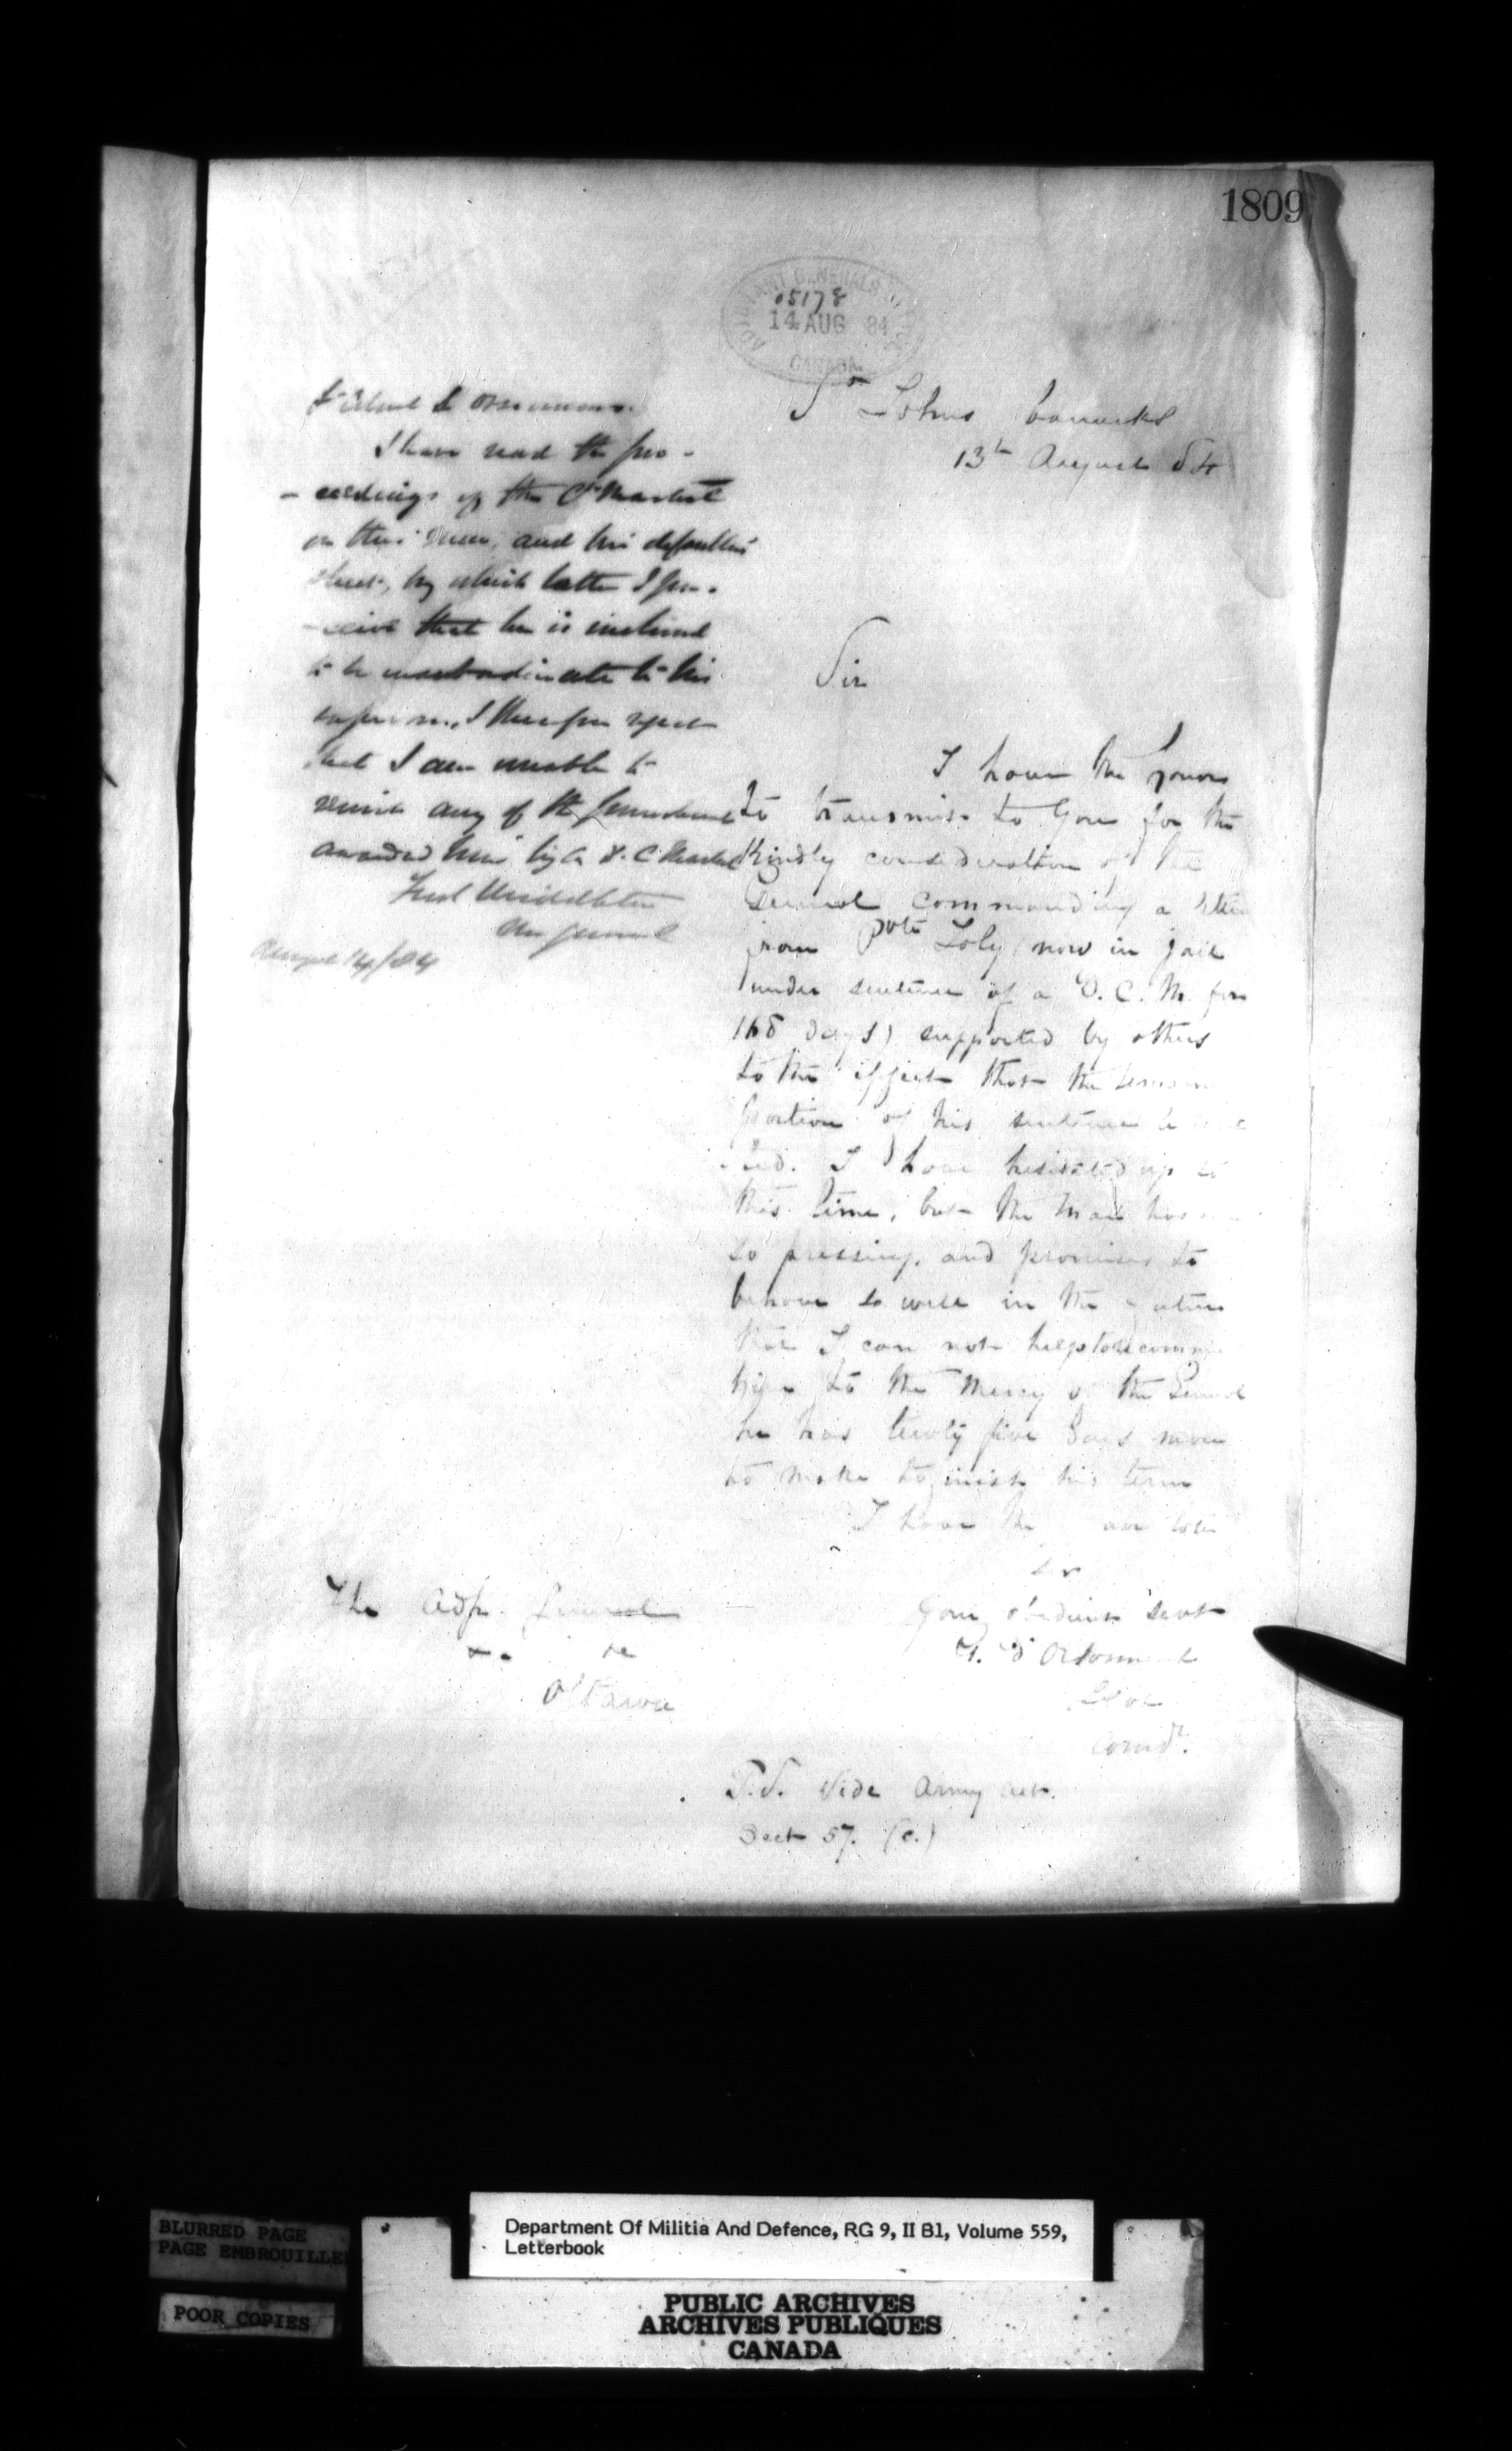 1809
ADJUTANT GENERALS OFFICE
05178
14 AUG 84
CANADA
St Johns barracks
13th August 84
Lt Colonel d'Orsonnens.
I have read the pro-
-ceedings of the Ct Martial
on this man, and his defaulter
sheet, by which latter I per-
-ceive that he is inclined
to be insubordinate to his
superiors, I therefore regret
that I am unable to
remit any of the punishment
awarded him by a D. C. Martial
Fred Middleton
M. General
August 14/84
Sir
I have the honor
to transmit to you for the
kindly consideration of the
General commanding a letter
from Pvte Joly (now in jail
under sentence of a D. C. M. for
168 days) supported by others
to the effect that the
portion of his sentence be
I have hesitated up to
this time, but the man has
so pressing, and promises to
behave so well in the future
that I can not help to recommend
him to the mercy of the General
he has twenty five days more
to make to finish his term
I have the
Sir
Your obedient servt
d'Orsonnens
Lt Col
Comdt.
The Adjt. General
&c &c
Ottawa
P.S. Vide Army Act.
Sect 57. (c.)
BLURRED PAGE
PAGE EMBROUILLEE
POOR COPIES
Department Of Militia And Defence, RG 9, II B1, Volume 559,
Letterbook
PUBLIC ARCHIVES
ARCHIVES PUBLIQUES
CANADA